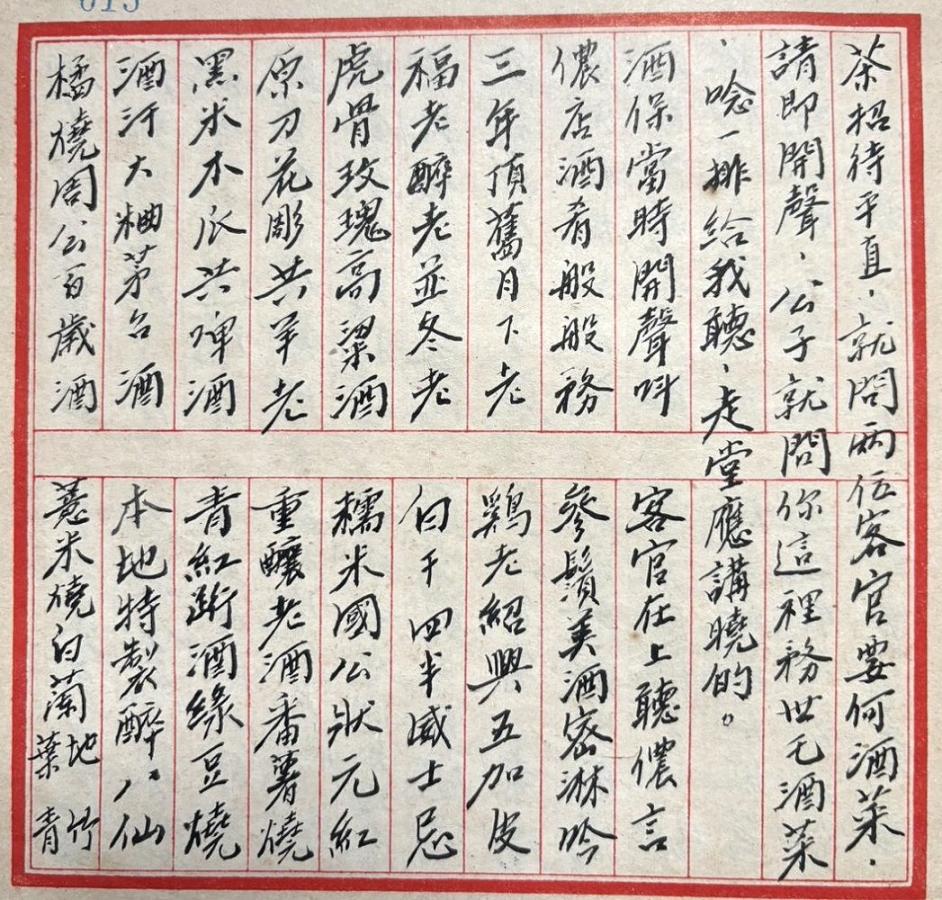 013
茶招待平直，就問兩伍客官要何酒菜，
請即開聲，公子就問你這裡務世乇酒菜
，唸一排給我聽，走堂應講曉的。
酒保當時開聲叫　客官在上聽儂言
儂店酒肴般般務　參鬚美酒密淋吟
三年頂舊月下老　鷄老紹興五加皮
福老醉老並冬老　白干四半威士忌
虎骨玫瑰高粱酒　糯米國公狀元紅
原刀花彫共羊老　重釀老酒番薯燒
黑米木瓜共啤酒　青紅䟰酒綠豆燒
酒汗大粬茅台酒　本地特製醉八仙
橘燒周公百歲酒　薏米燒白蘭地竹葉青